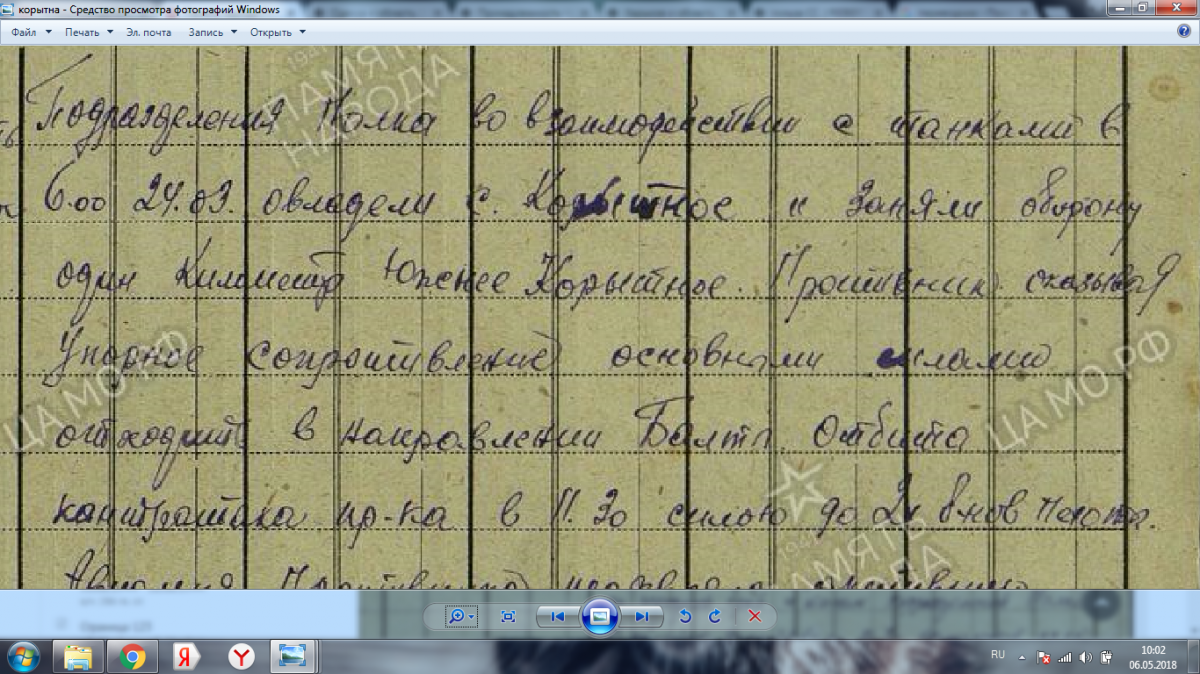 корытна - Средство просмотра фотографий Windows
Файл Печать Эл. почта Запись Открыть
Подразделения Полка во взаимодействии с танками в
6.00 24.03. овладели с. Корытное и заняли оборону
один километр Южнее Корытное. Противник оказывая
Упорное сопротивление основными силами
отходит в направлении Балта. Отбита
контратака пр-ка в 11.30 силою до 2х в-нов пехоты.
Авиация Противника
ПАМЯТЬ
НАРОДА
ЦАМО.РФ
ЦАМО.РФ
ПАМЯТЬ
НАРОДА
RU
10:02
06.05.2018